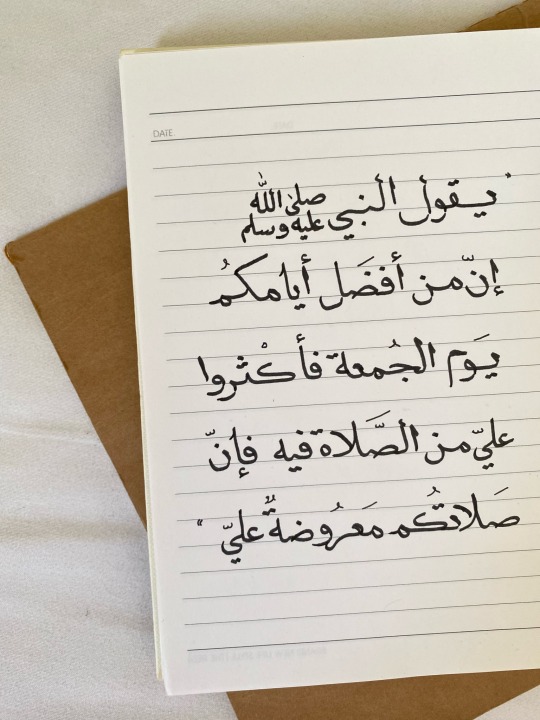 DATE.
" يـقول النبي صلى الله عليه وسلم
إنّ من أفضَل أيامكُم
يَوم الجُمعة فأكْثروا
عليّ من الصَّلاة فيه فإنّ
صَلاتكُم مَعرُوضةٌ عليّ "